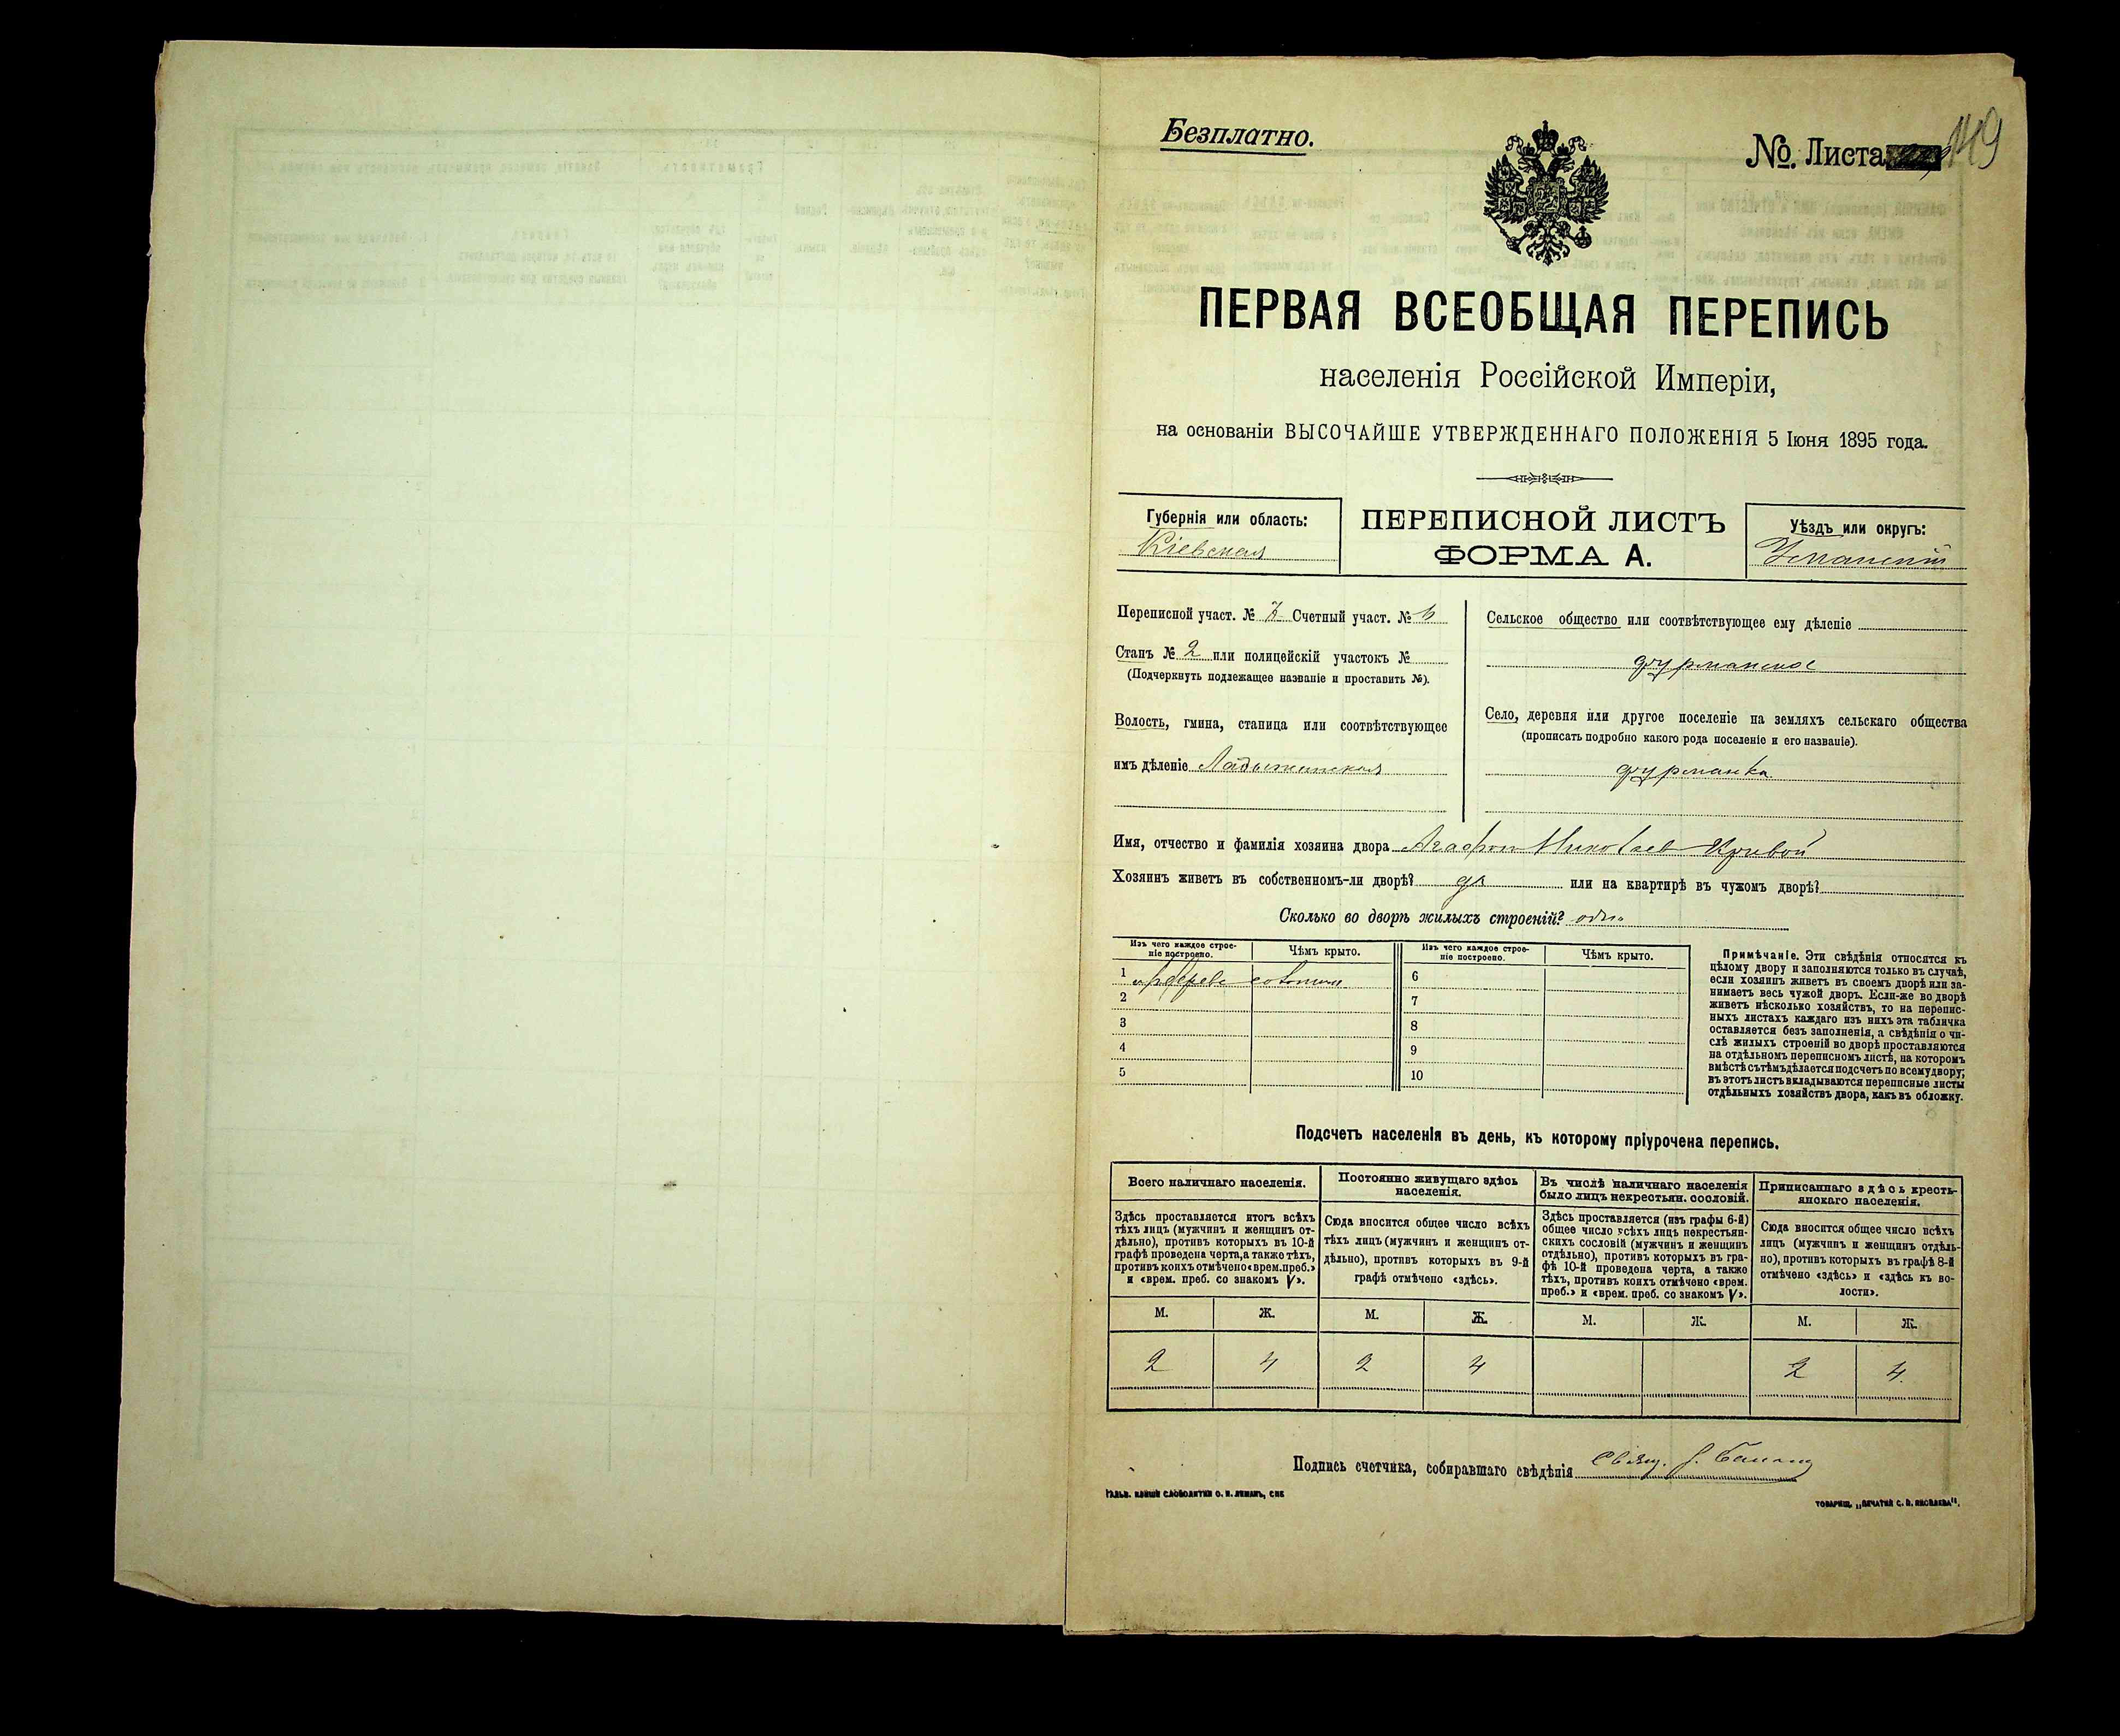 Безплатно.
№. Листа 149
ПЕРВАЯ ВСЕОБЩАЯ ПЕРЕПИСЬ
населенія Россійской Имперіи,
на основаніи ВЫСОЧАЙШЕ УТВЕРЖДЕННАГО ПОЛОЖЕНІЯ 5 Іюня 1895 года.
Губернія или область:
Кіевская
ПЕРЕПИСНОЙ ЛИСТЪ
ФОРМА А.
Уѣздъ или округъ:
Уманскій
Переписной участ. № Счетный участ. №
Станъ № 2 или полицейскій участокъ №
(Подчеркнуть подлежащее названіе и проставить №).
Волость, гмина, станица или соотвѣтствующее
имъ дѣленіе Ладыжинская
Сельское общество или соотвѣтствующее ему дѣленіе
фурманское
Село, деревня или другое поселеніе на земляхъ сельскаго общества
(прописать подробно какого рода поселеніе и его названіе).
фурманка
Имя, отчество и фамилія хозяина двора Агафон Николаев Кривой
Хозяинъ живетъ въ собственномъ-ли дворѣ? да или на квартирѣ въ чужомъ дворѣ?
Сколько во дворѣ жилыхъ строеній? один
Изъ чего каждое строе-
ніе построено.
Чѣмъ крыто.
Изъ чего каждое строе-
ніе построено.
Чѣмъ крыто.
1 соломою
2
3
4
5
6
7
8
9
10
Примѣчаніе. Эти свѣдѣнія относятся къ
цѣлому двору и заполняются только въ случаѣ,
если хозяинъ живетъ въ своемъ дворѣ или за-
нимаетъ весь чужой дворъ. Если-же во дворѣ
живетъ нѣсколько хозяйствъ, то на перепис-
ныхъ листахъ каждаго изъ нихъ эта табличка
оставляется безъ заполненія, а свѣдѣнія о чи-
слѣ жилыхъ строеній во дворѣ проставляются
на отдѣльномъ переписномъ листѣ, на которомъ
вмѣстѣ съ тѣмъ дѣлается подсчетъ по всему двору;
въ этотъ листъ вкладываются переписные листы
отдѣльныхъ хозяйствъ двора, какъ въ обложку.
Подсчетъ населенія въ день, къ которому пріурочена перепись.
Всего наличнаго населенія.
Здѣсь проставляется итогъ всѣхъ
тѣхъ лицъ (мужчинъ и женщинъ от-
дѣльно), противъ которыхъ въ 10-й
графѣ проведена черта, а также тѣхъ,
противъ коихъ отмѣчено «врем. преб.»
и «врем. преб. со знакомъ V».
Постоянно живущаго здѣсь
населенія.
Сюда вносится общее число всѣхъ
тѣхъ лицъ (мужчинъ и женщинъ от-
дѣльно), противъ которыхъ въ 9-й
графѣ отмѣчено «здѣсь».
Въ числѣ наличнаго населенія
было лицъ некрестьян. сословій.
Здѣсь проставляется (изъ графы 6-й)
общее число всѣхъ лицъ некрестьян-
скихъ сословій (мужчинъ и женщинъ
отдѣльно), противъ которыхъ въ гра-
фѣ 10-й проведена черта, а также
тѣхъ, противъ коихъ отмѣчено «врем.
преб.» и «врем. преб. со знакомъ V».
Приписаннаго здѣсь кресть-
янскаго населенія.
Сюда вносится общее число всѣхъ
лицъ (мужчинъ и женщинъ отдѣль-
но), противъ которыхъ въ графѣ 8-й
отмѣчено «здѣсь» и «здѣсь къ во-
лости».
М. Ж. М. Ж. М. Ж. М. Ж.
2 4 2 4 2 4
Подпись счетчика, собиравшаго свѣдѣнія Свящ.
ТОВАРИЩ. „ПЕЧАТНЯ С. П. ЯКОВЛЕВА“.